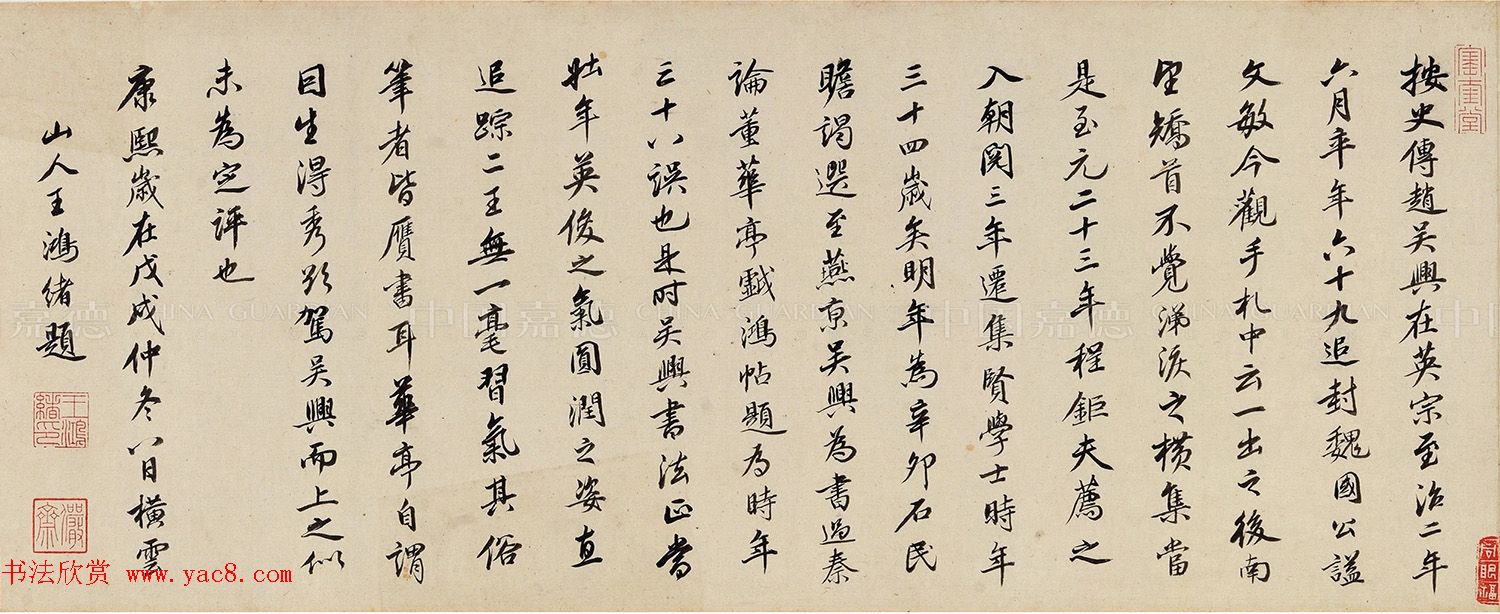 按史傳趙吳興在英宗至治二年
六月卒年六十九追封魏國公謚
文敏今觀手札中云一出之後南
望矯首不覺涕淚之橫集當
是至元二十三年程鉅夫薦之
入朝閱三年遷集賢學士時年
三十四歲矣明年為辛卯石民
瞻謁選至燕京吳興為書過秦
論董華亭戲鴻帖題為時年
三十八誤也是時吳興書法正當
壯年英俊之氣圓潤之姿直
追踪二王無一毫習氣其俗
筆者皆贗書耳華亭自謂
因生得秀欲駕吳興而上之似
未為定評也
康熙歲在戊戌仲冬八日橫雲
山人王鴻緒題
王鴻緒印
儼齋
寶奎堂
眼福
中国嘉德 CHINA GUARDIAN
书法欣赏 www.yac8.com